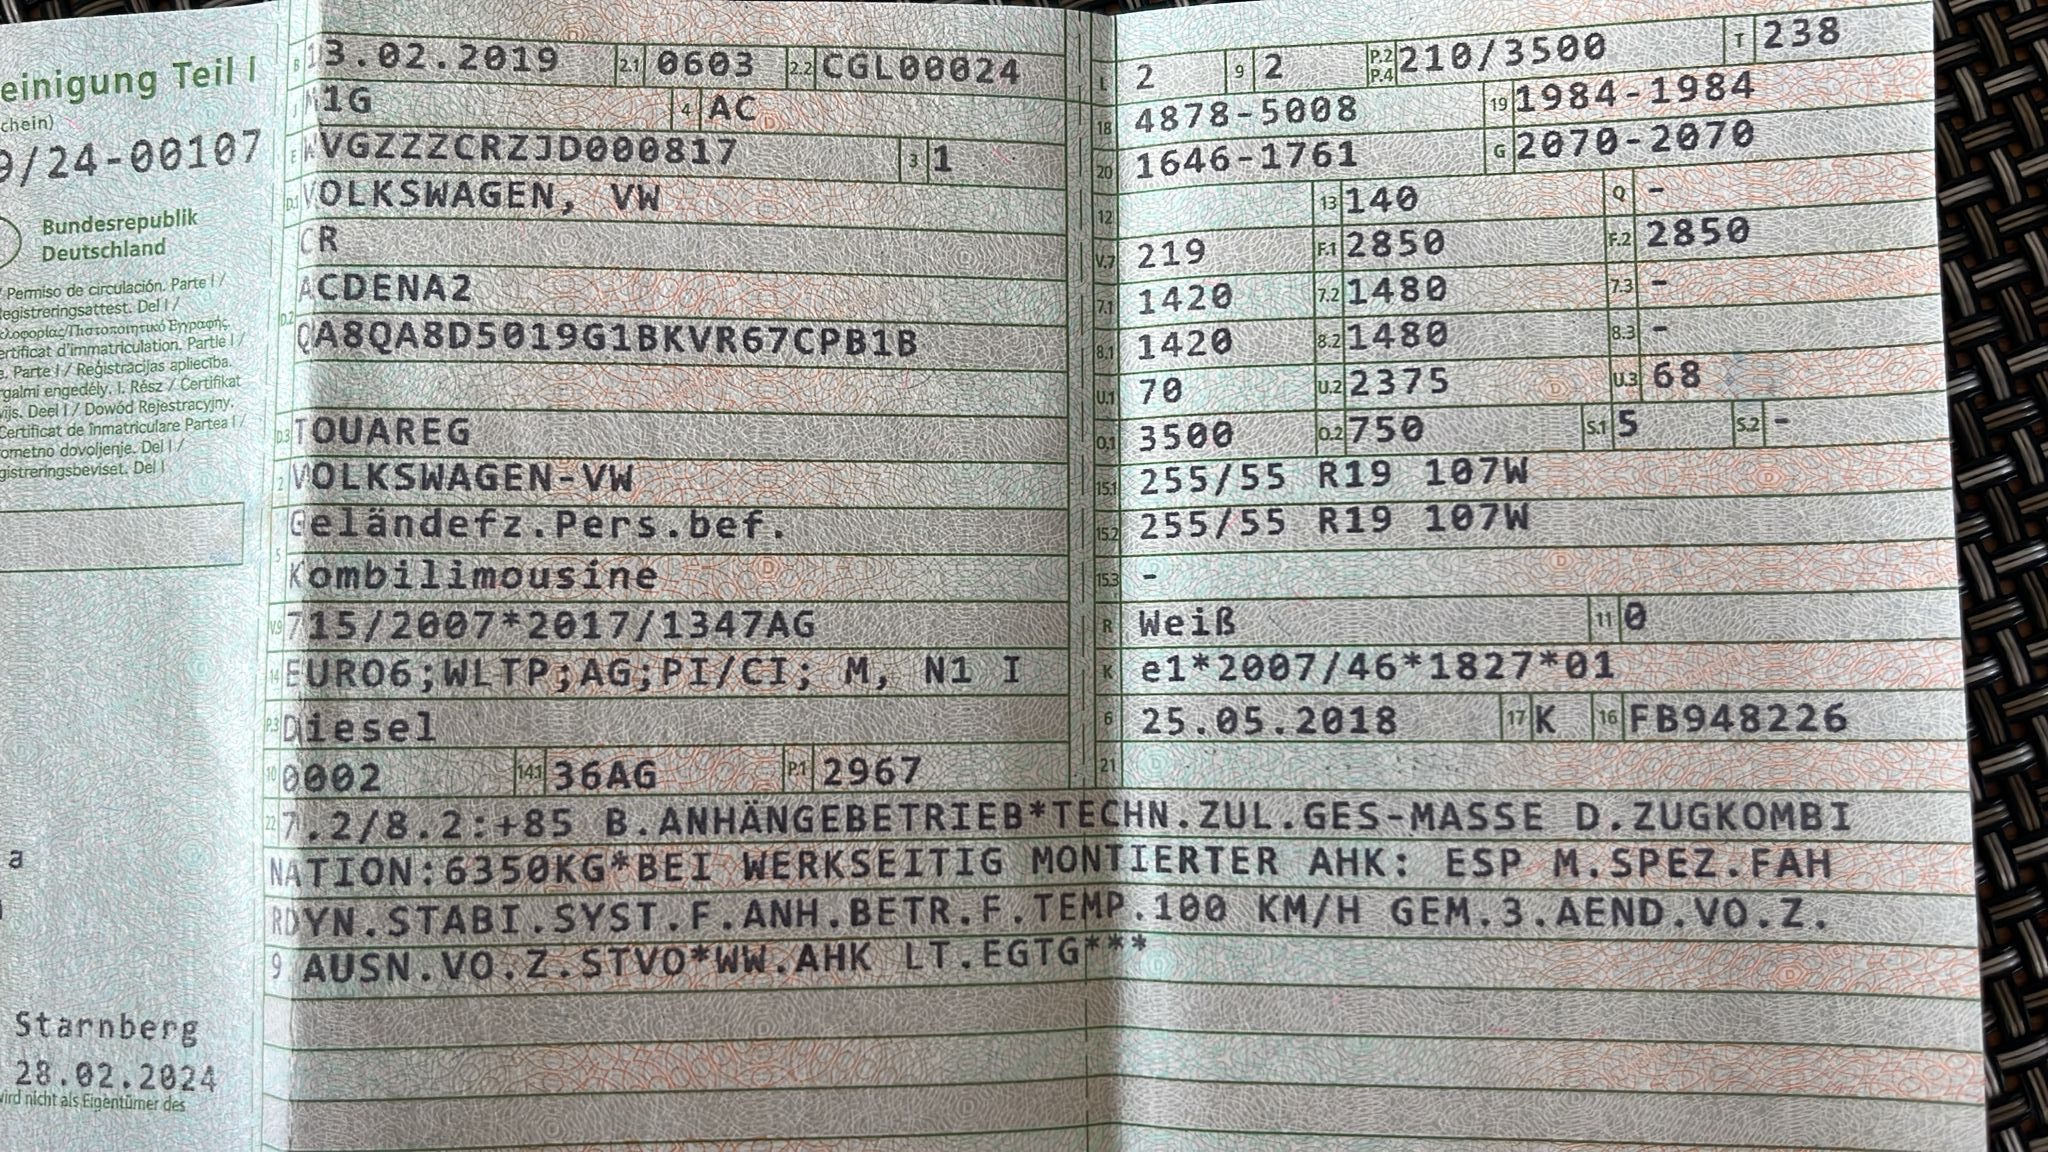 einigung Teil I
chein)
9/24-00107
Bundesrepublik
Deutschland
/ Permiso de circulación. Parte I /
egistreringsattest. Del I /
ertificat d'immatriculation. Partie I /
e. Parte I / Reģistrācijas apliecība.
rgalmi engedély. I. Rész / Certifikat
vijs. Deel I / Dowód Rejestracyjny.
Certificat de înmatriculare Partea I /
ometno dovoljenje. Del I /
gistreringsbeviset. Del I
a
Starnberg
28.02.2024
wird nicht als Eigentümer des
B 13.02.2019 2.1 0603 2.2 CGL00024
J M1G 4 AC
E WVGZZZCRZJD000817 3 1
D.1 VOLKSWAGEN, VW
CR
D.2 ACDENA2
QA8QA8D5019G1BKVR67CPB1B
D.3 TOUAREG
2 VOLKSWAGEN-VW
5 Geländefz.Pers.bef.
Kombilimousine
V.9 715/2007*2017/1347AG
14 EURO6;WLTP;AG;PI/CI; M, N1 I
P.3 Diesel
10 0002 14.1 36AG P.1 2967
L 2 9 2 P.2 P.4 210/3500 T 238
18 4878-5008 19 1984-1984
20 1646-1761 G 2070-2070
12 13 140 Q -
V.7 219 F.1 2850 F.2 2850
7.1 1420 7.2 1480 7.3 -
8.1 1420 8.2 1480 8.3 -
U.1 70 U.2 2375 U.3 68
O.1 3500 O.2 750 S.1 5 S.2 -
15.1 255/55 R19 107W
15.2 255/55 R19 107W
15.3 -
R Weiß 11 0
K e1*2007/46*1827*01
6 25.05.2018 17 K 16 FB948226
21
22 7.2/8.2:+85 B.ANHÄNGEBETRIEB*TECHN.ZUL.GES-MASSE D.ZUGKOMBI
NATION:6350KG*BEI WERKSEITIG MONTIERTER AHK: ESP M.SPEZ.FAH
RDYN.STABI.SYST.F.ANH.BETR.F.TEMP.100 KM/H GEM.3.AEND.VO.Z.
9 AUSN.VO.Z.STVO*WW.AHK LT.EGTG***